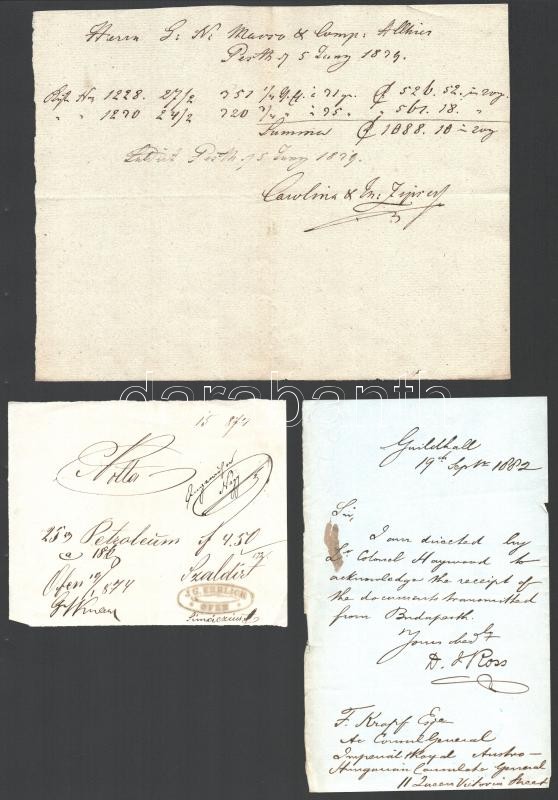 Herrn G: N: Mavro & Comp: Allhier
Pesth 5 Juny 1839.
No 1228. 27/2 351 à 52 6. 52.
" " 1230 24/2 320 " à 35 " 561. 18. "
Summa 1088. 10 in
Saldirt Pesth 5 Juny 1839.
Carolina &
darabanth
15 874
Notta
25 Petroleum f 4.50
a 18
Ofen 1874 Szaldirt
J.G. EHRLICH
OFEN
Guildhall
19th Septr 1882
Sir,
I am directed by
Lt Colonel Haywood to
acknowledge the receipt of
the documents transmitted
from Budapesth.
Yours obedtly
D. J Ross
F. Krapf Esqe
Ac Consul General
Imperial & Royal Austro-
Hungarian Consulate General
11 Queen Victoria Street